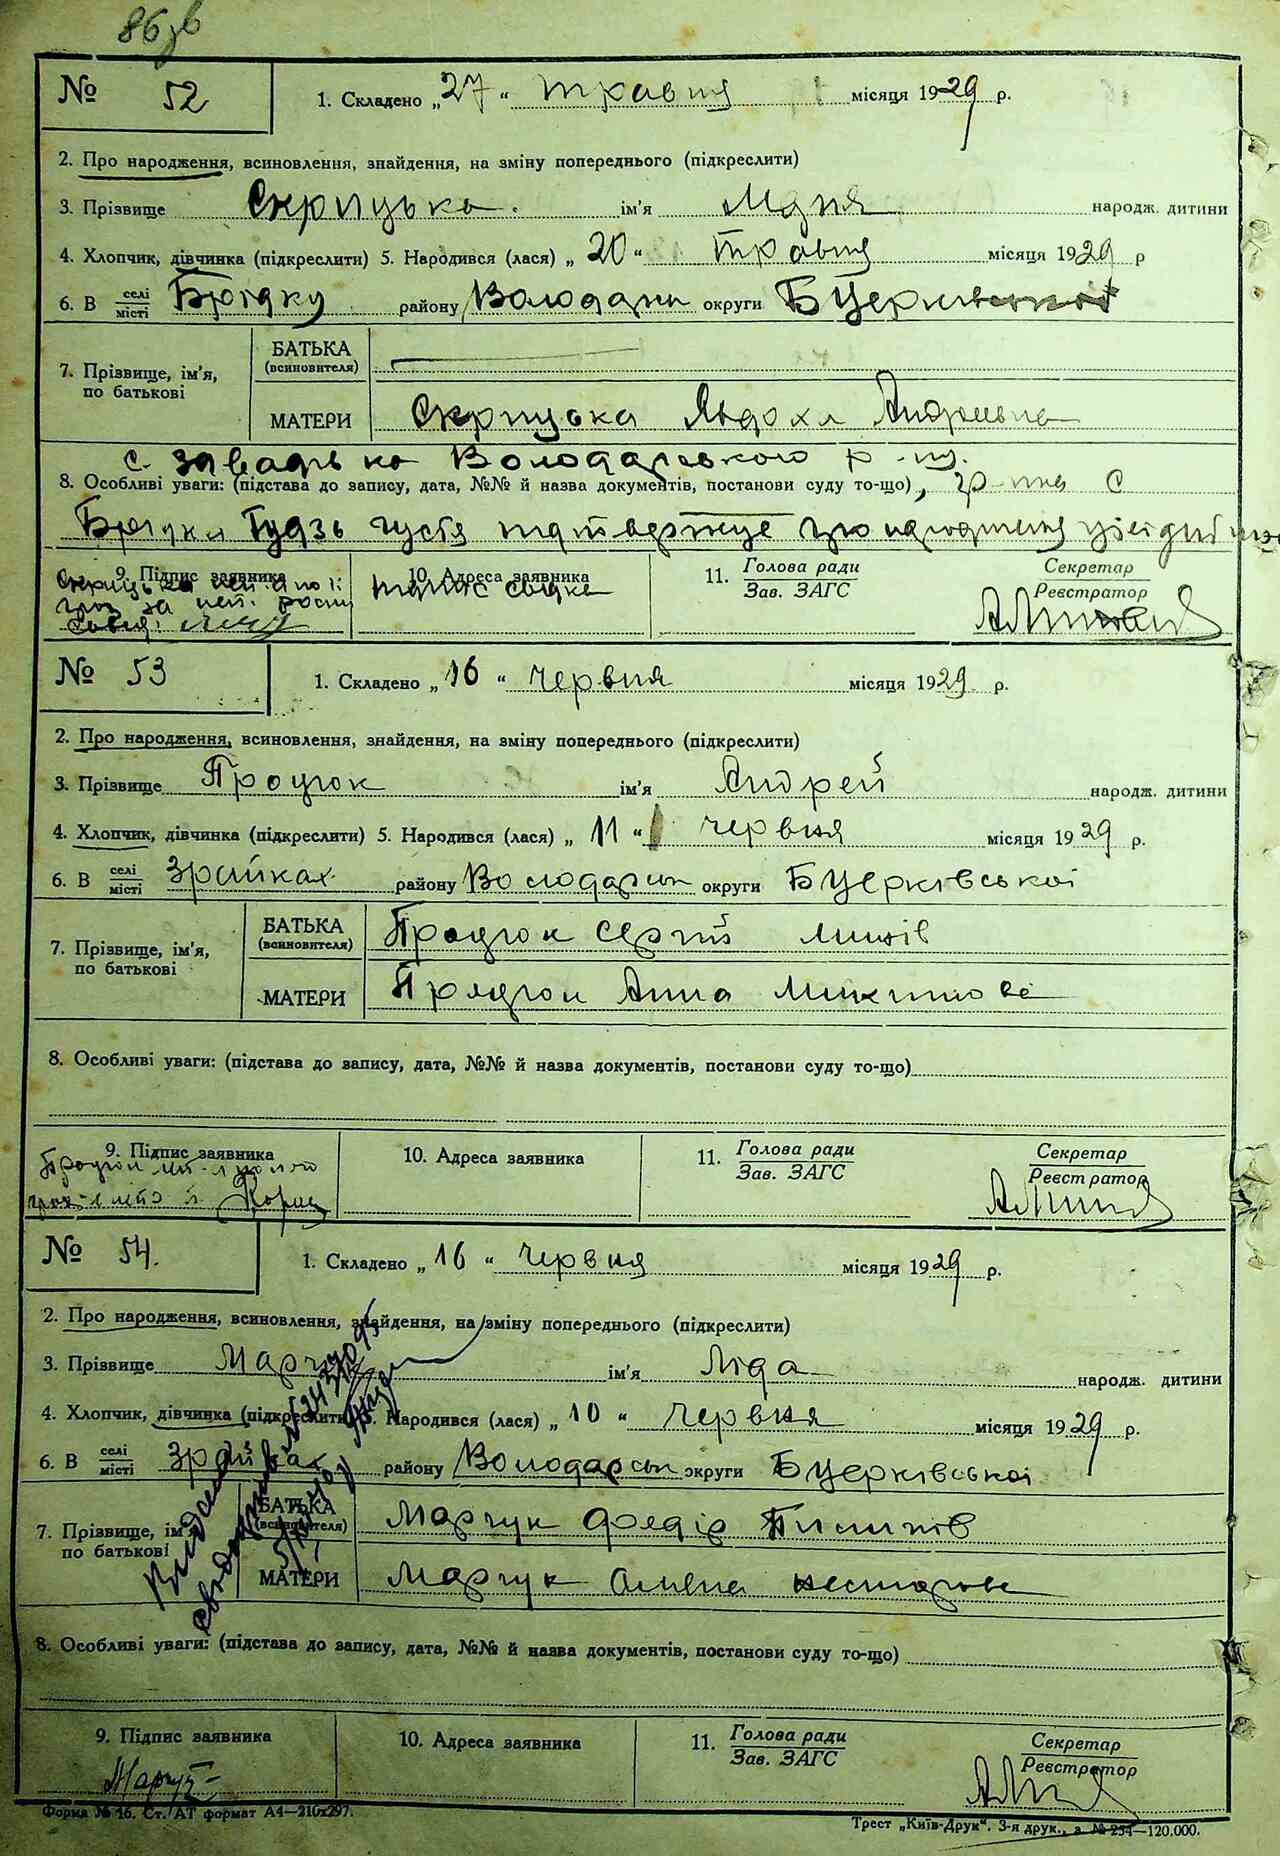 86 зв
№ 52
1. Складено „27“ травня місяця 1929 р.
2. Про народження, всиновлення, знайдення, на зміну попереднього (підкреслити)
3. Прізвище Скрицька ім'я народж. дитини
4. Хлопчик, дівчинка (підкреслити) 5. Народився (лася) „20“ травня місяця 1929 р
6. В селі/місті Брідку району Володарськ округи БЦерківської
7. Прізвище, ім'я, по батькові
БАТЬКА (всиновителя) —
МАТЕРИ Скрицька Явдоха Андріївна
с. Завадівка Володарського р-ну.
8. Особливі уваги: (підстава до запису, дата, №№ й назва документів, постанови суду то-що), гр-нка с
Брідка Гудзь підтверджує
9. Підпис заявника
10. Адреса заявника
підпис свідка
11. Голова ради / Зав. ЗАГС
Секретар / Реєстратор
№ 53
1. Складено „16“ червня місяця 1929 р.
2. Про народження, всиновлення, знайдення, на зміну попереднього (підкреслити)
3. Прізвище Процюк ім'я Андрей народж. дитини
4. Хлопчик, дівчинка (підкреслити) 5. Народився (лася) „11“ червня місяця 1929 р.
6. В селі/місті Зрайках району Володарськ округи БЦерківської
7. Прізвище, ім'я, по батькові
БАТЬКА (всиновителя) Процюк Сергій
МАТЕРИ Процюк Анна Микитова
8. Особливі уваги: (підстава до запису, дата, №№ й назва документів, постанови суду то-що)
9. Підпис заявника
10. Адреса заявника
11. Голова ради / Зав. ЗАГС
Секретар / Реєстратор
№ 54.
1. Складено „16“ червня місяця 1929 р.
2. Про народження, всиновлення, знайдення, на зміну попереднього (підкреслити)
3. Прізвище Марчук ім'я Ліда народж. дитини
4. Хлопчик, дівчинка (підкреслити) 5. Народився (лася) „10“ червня місяця 1929 р.
6. В селі/місті Зрайках району Володарськ округи БЦерківської
7. Прізвище, ім'я, по батькові
БАТЬКА (всиновителя) Марчук Федір Пилипів
МАТЕРИ Марчук Олена Несторова
8. Особливі уваги: (підстава до запису, дата, №№ й назва документів, постанови суду то-що)
9. Підпис заявника
Марчук
10. Адреса заявника
11. Голова ради / Зав. ЗАГС
Секретар / Реєстратор
Форма № 16. Ст. АТ формат А4—210x297.
Трест „Київ-Друк“. 3-я друк., з. № 254—120.000.